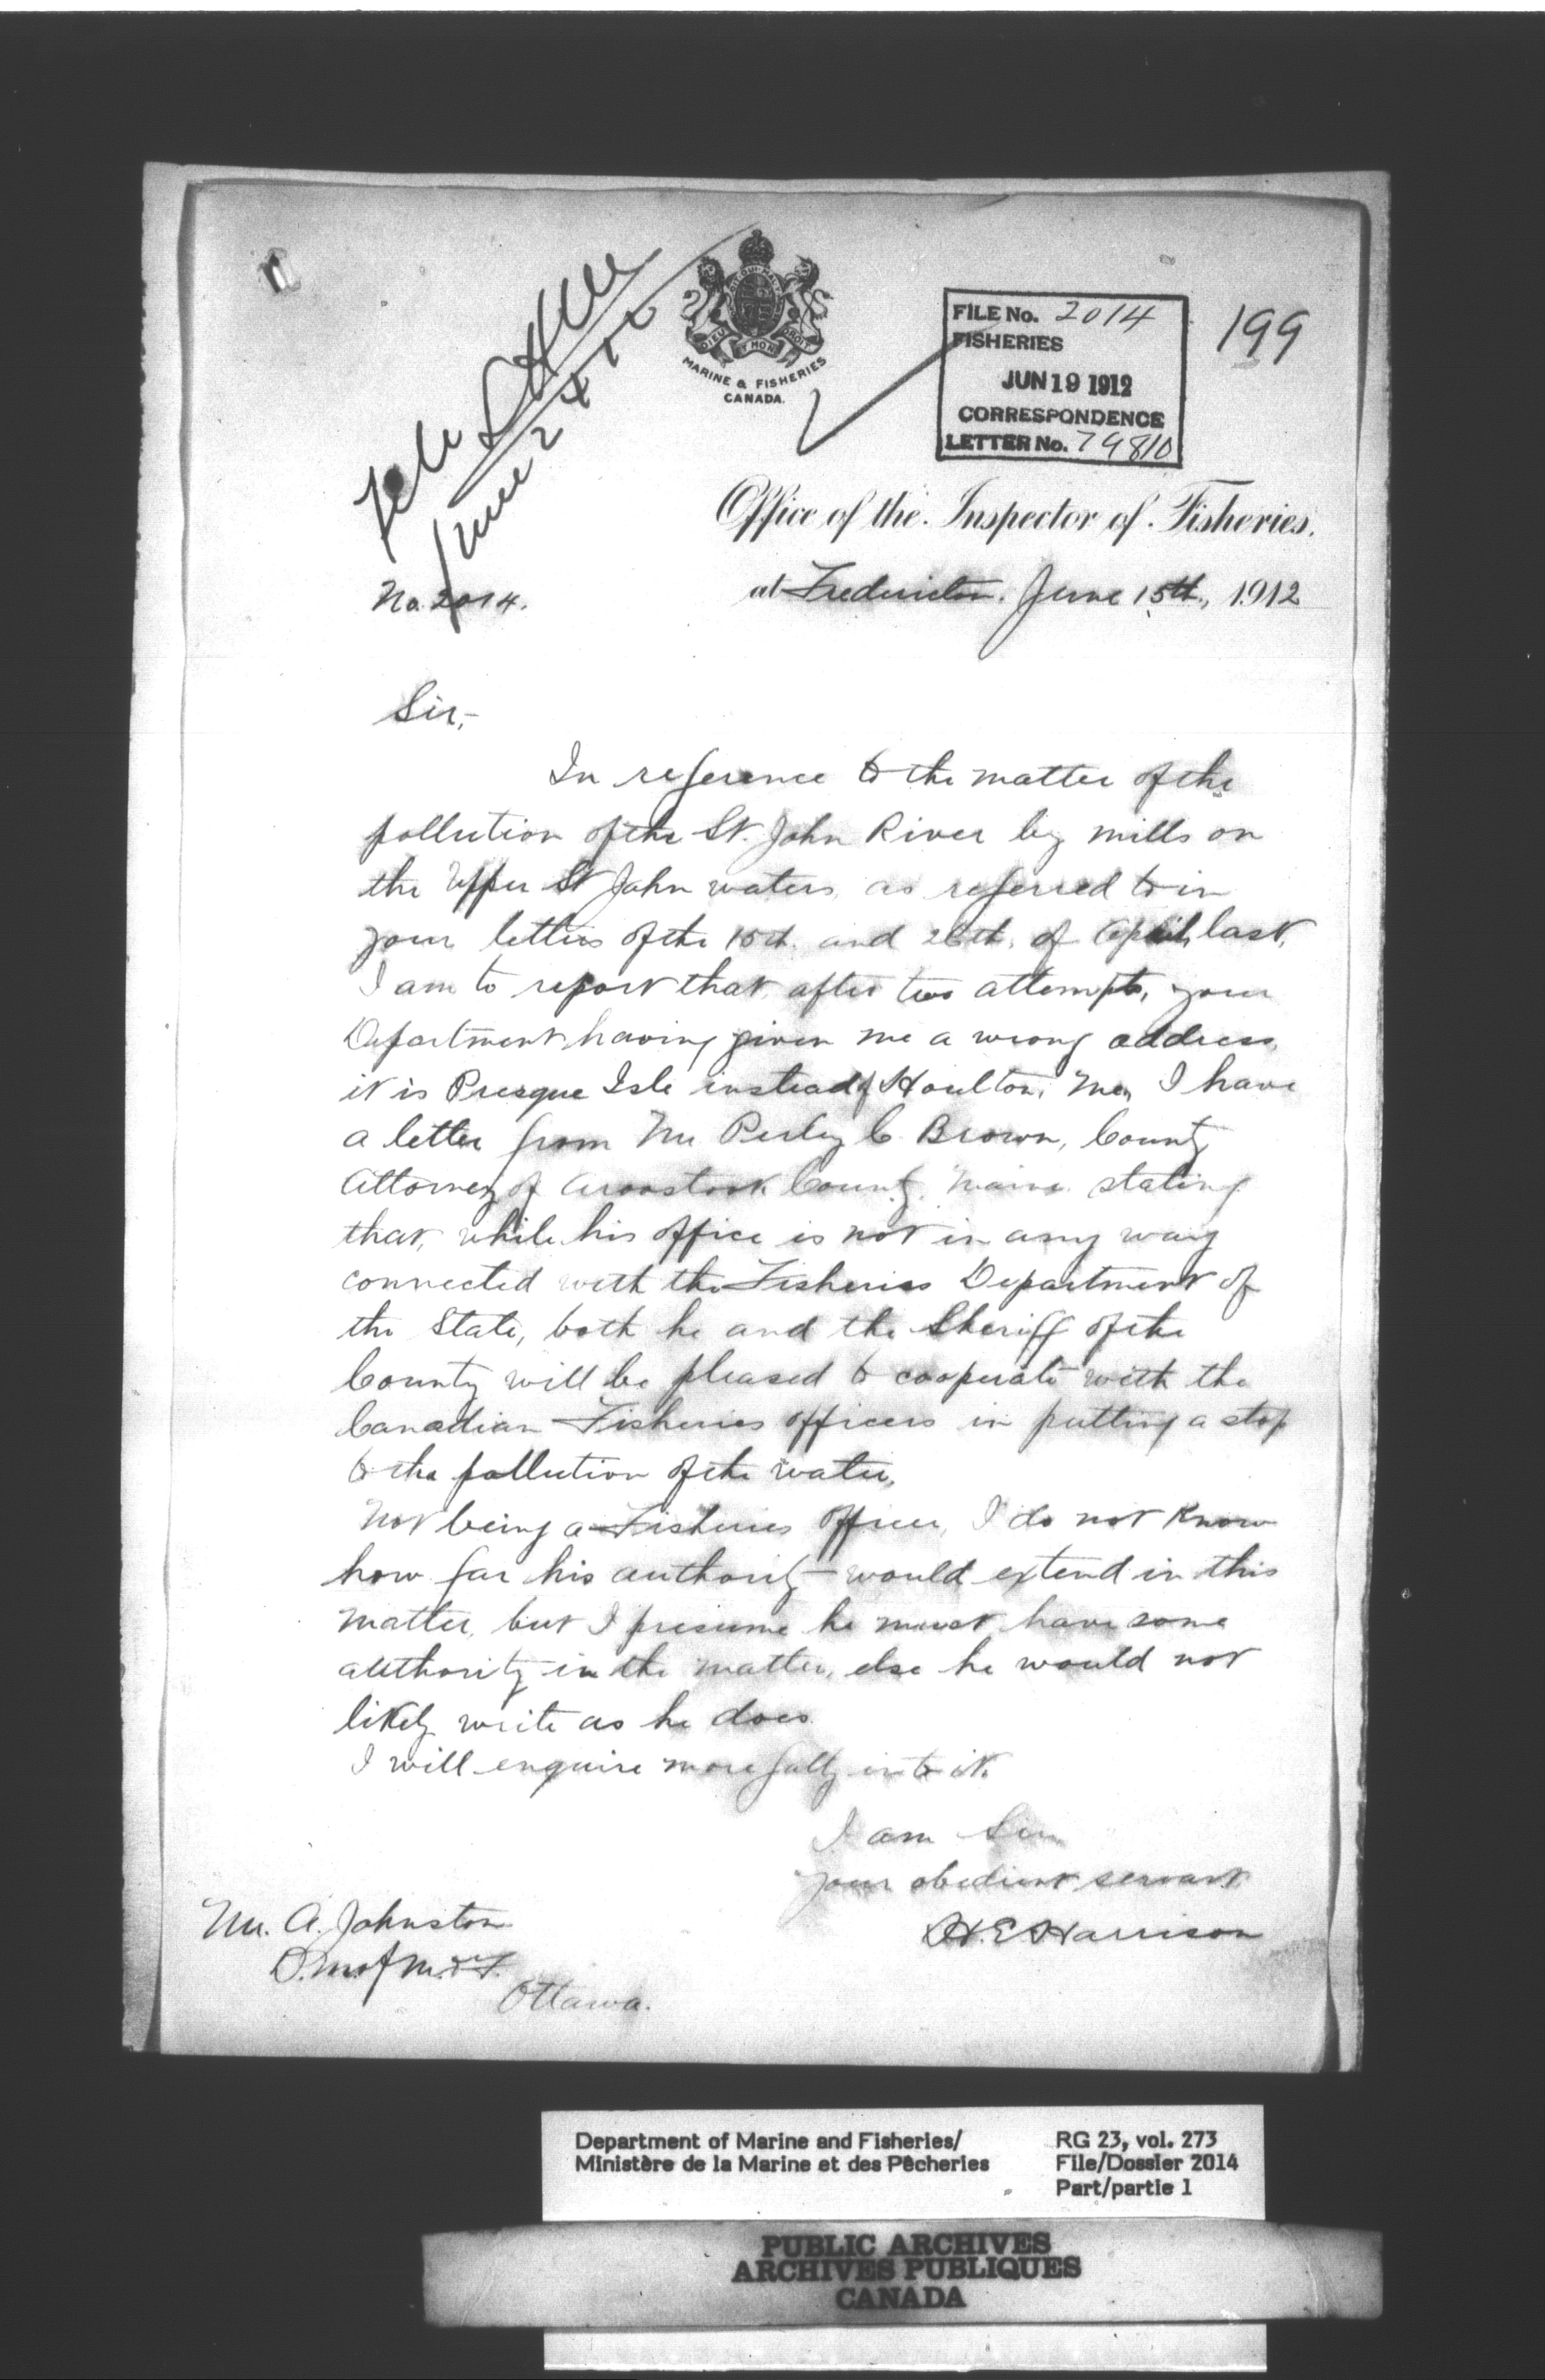 HONI SOIT QUI MAL
DIEU ET MON DROIT
MARINE & FISHERIES
CANADA.
FILE No. 2014
FISHERIES
JUN 19 1912
CORRESPONDENCE
LETTER No. 79810
199
June 24 12
Office of the Inspector of Fisheries.
No. 2014.
at Fredericton. June 15th, 1912
Sir,-
In reference to the matter of the
pollution of the St. John River by mills on
the Upper St John waters, as referred to in
your letters of the 15th. and 26th. of April, last,
I am to report that, after two attempts, your
Department having given me a wrong address,
it is Presque Isle instead of Houlton, Me, I have
a letter from Mr Perley C. Brown, County
Attorney of Aroostook County, Maine stating
that, while his office is not in any way
connected with the Fisheries Department of
the State, both he and the Sheriff of the
County will be pleased to cooperate with the
Canadian Fisheries officers in putting a stop
to the pollution of the water.
Not being a Fisheries Officer, I do not know
how far his authority would extend in this
matter, but I presume he must have some
authority in the matter, else he would not
likely write as he does.
I will enquire more fully into it.
I am Sir
your obedient servant
H.E. Harrison
Mr. A. Johnston
D.M. of M. & F.
Ottawa.
Department of Marine and Fisheries/
Ministère de la Marine et des Pêcheries
RG 23, vol. 273
File/Dossier 2014
Part/partie 1
PUBLIC ARCHIVES
ARCHIVES PUBLIQUES
CANADA